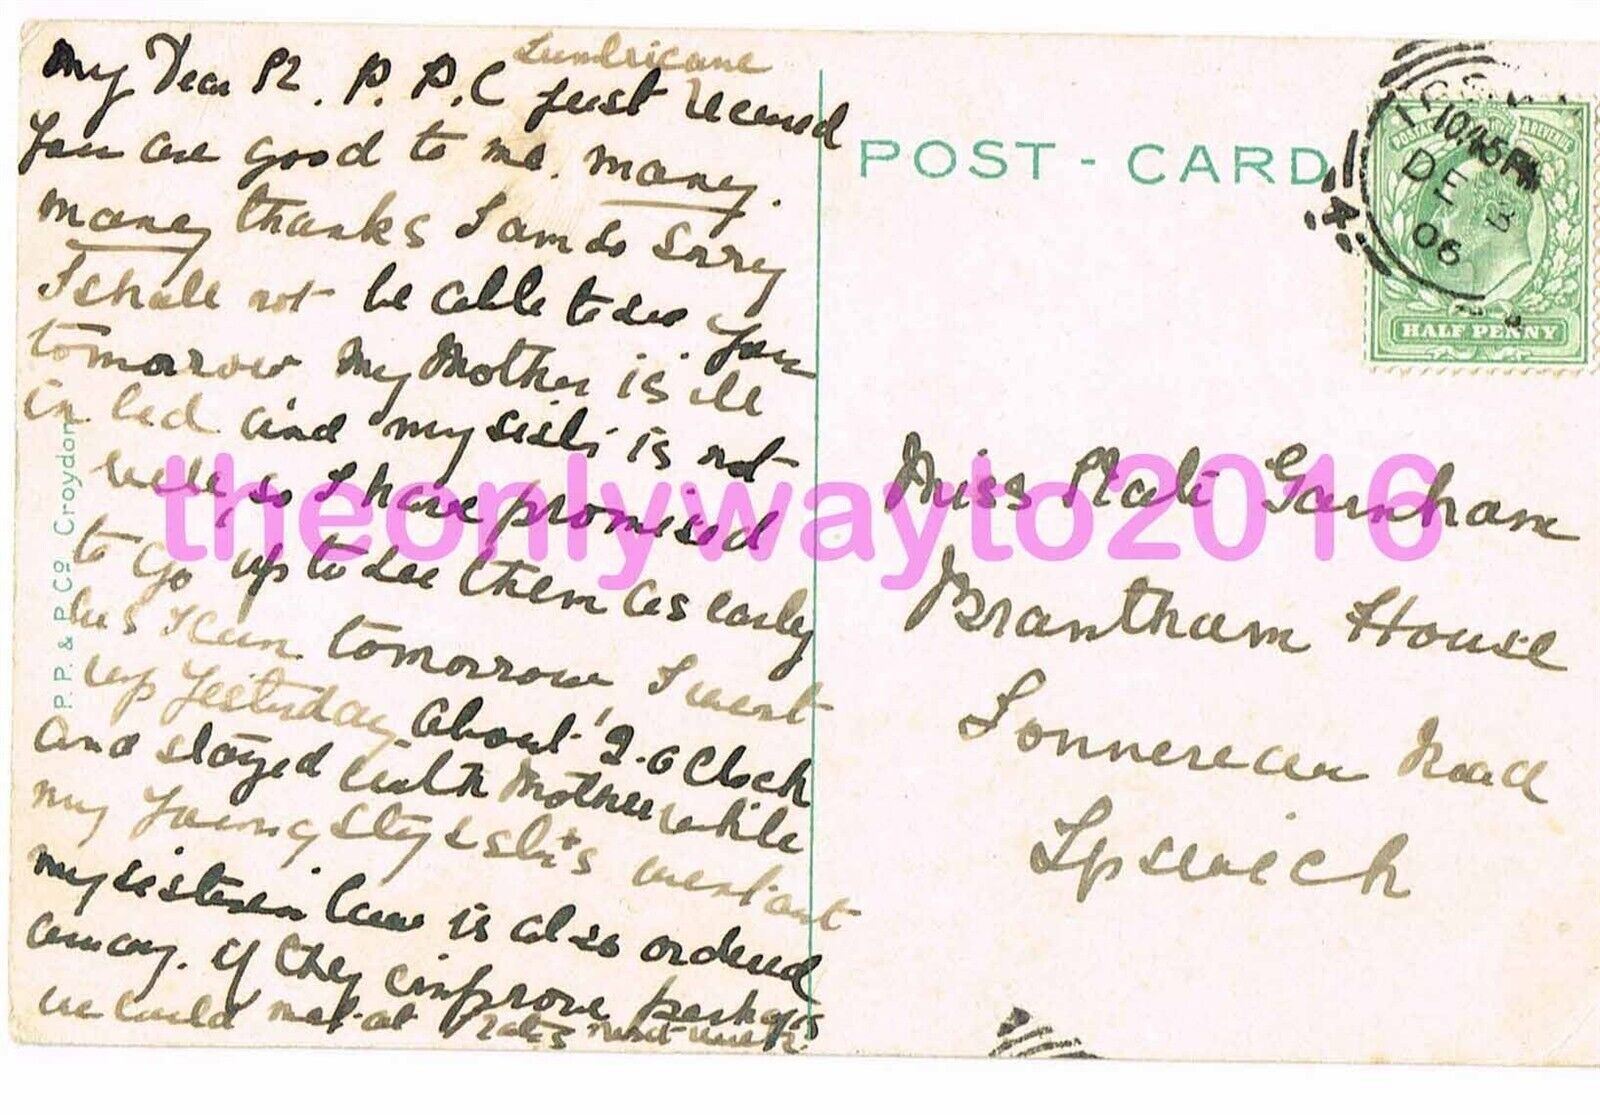 My Dear P2. P. P. C just received
You are good to me. many.
many thanks I am so sorry
I shall not be able to see you
tomorrow My Mother is ill
in bed and my sister is not
well so I have promised
to go up to see them as early
as I can tomorrow, I went
up yesterday about 2.o clock
and stayed with Mother while
my young sister went out
my sister in law is also ordered
away. if they improve perhaps
we could meet at next week
POST - CARD
IPSWICH
10.45 PM
DE 3
06
POSTAGE & REVENUE
HALF PENNY
Miss Kate Garnham
Brantham House
Road
Ipswich
P.P. & P. Co. Croydon
theonlywayto2016